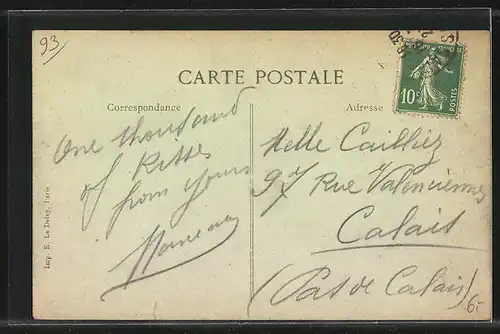 93
16-30
CARTE POSTALE
Correspondance
Adresse
10c
POSTES
One thousand
of Kisses
from yours
Melle Cailliez
97 Rue Valenciennes
Calais
(Pas de Calais)
Imp. E. Le Deley, Paris
6.-